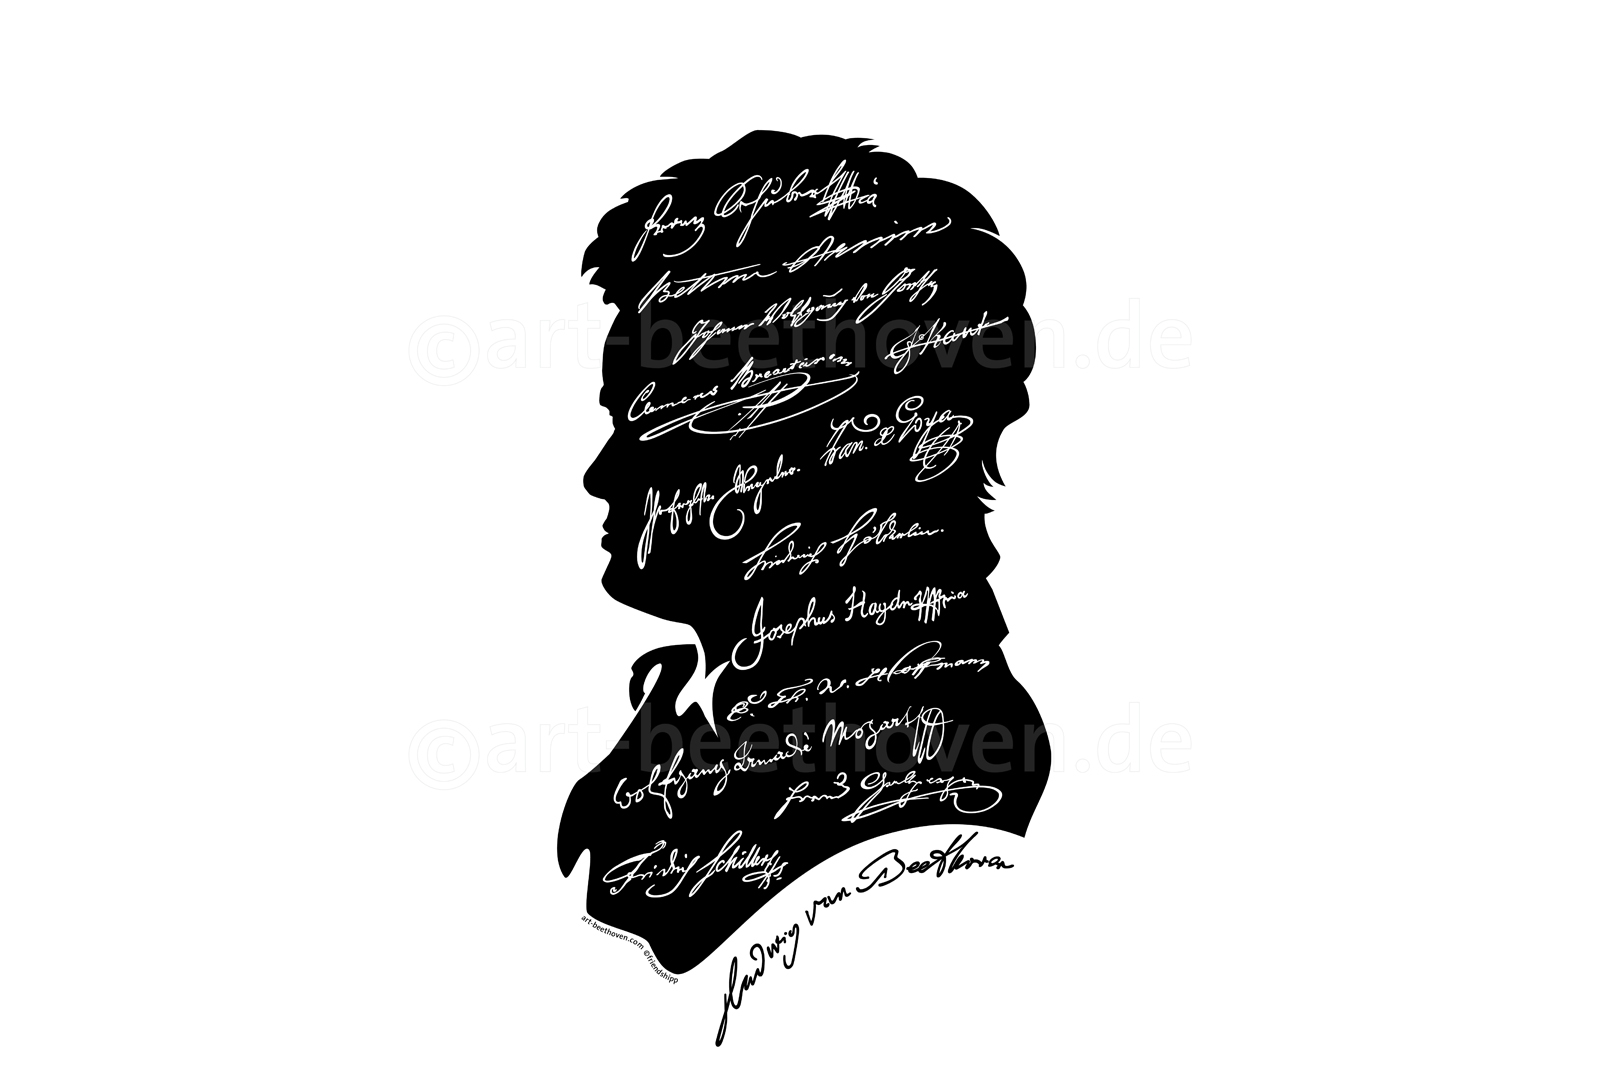 Franz Schubert
Bettina Arnim
Johann Wolfgang von Goethe
©art-beethoven.de
I Kant
Clemens Brentano
Fran. de Goya
Wegeler.
Friedrich Hölderlin.
Josephus Haydn
E. Th. W. Hoffmann
©art-beethoven.de
Wolfgang Amadè Mozart
Franz
Fridrich Schiller
Ludwig van Beethoven
art-beethoven.com ©friendshipp